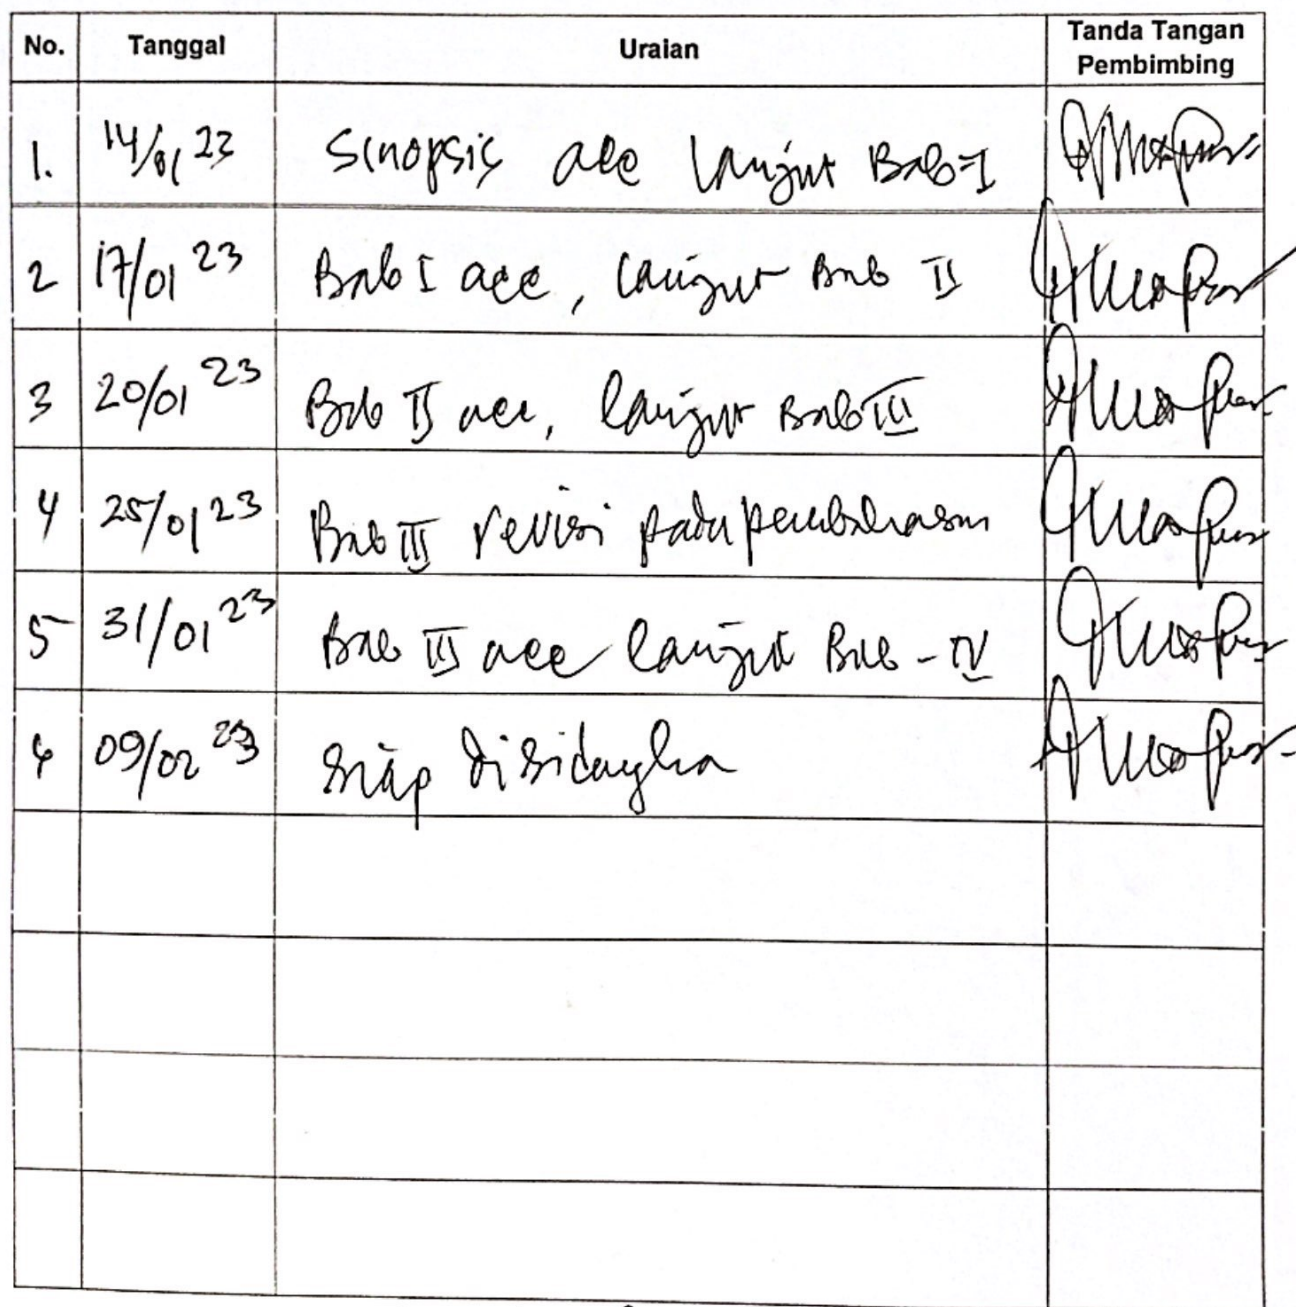 No. Tanggal Uraian Tanda Tangan
Pembimbing
1. 14/01 23 Sinopsis acc lanjut Bab-I
2 17/01 23 Bab I acc, lanjut Bab II
3 20/01 23 Bab II acc, lanjut Bab III
4 25/01 23 Bab III revisi pada pembahasan
5 31/01 23 Bab III acc lanjut Bab - IV
6 09/02 23 Siap disidangkan